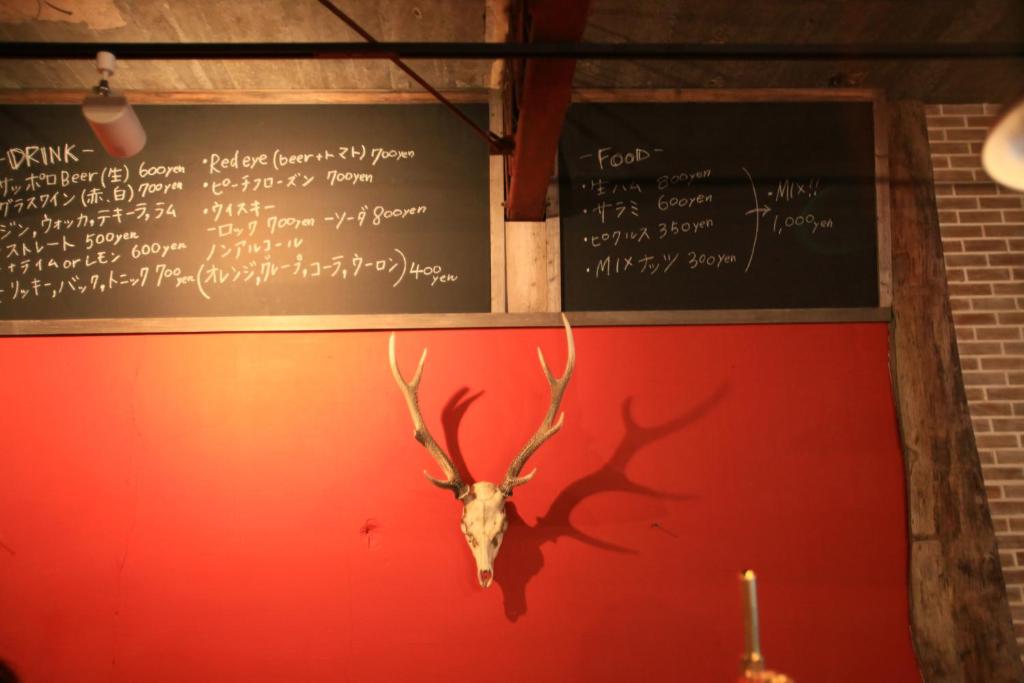 -DRINK-
サッポロBeer(生) 600yen
グラスワイン(赤、白) 700yen
ジン,ウォッカ,テキーラ,ラム
ストレート 500yen
+ライム or レモン 600yen
リッキー,バック,トニック 700yen
・Redeye (beer+トマト) 700yen
・ピーチフローズン 700yen
・ウイスキー
-ロック 700yen -ソーダ 800yen
ノンアルコール
(オレンジ,グレープ,コーラ,ウーロン) 400yen
-FOOD-
・生ハム 800yen
・サラミ 600yen
・ピクルス 350yen
・MIXナッツ 300yen
・MIX!!
1,000yen